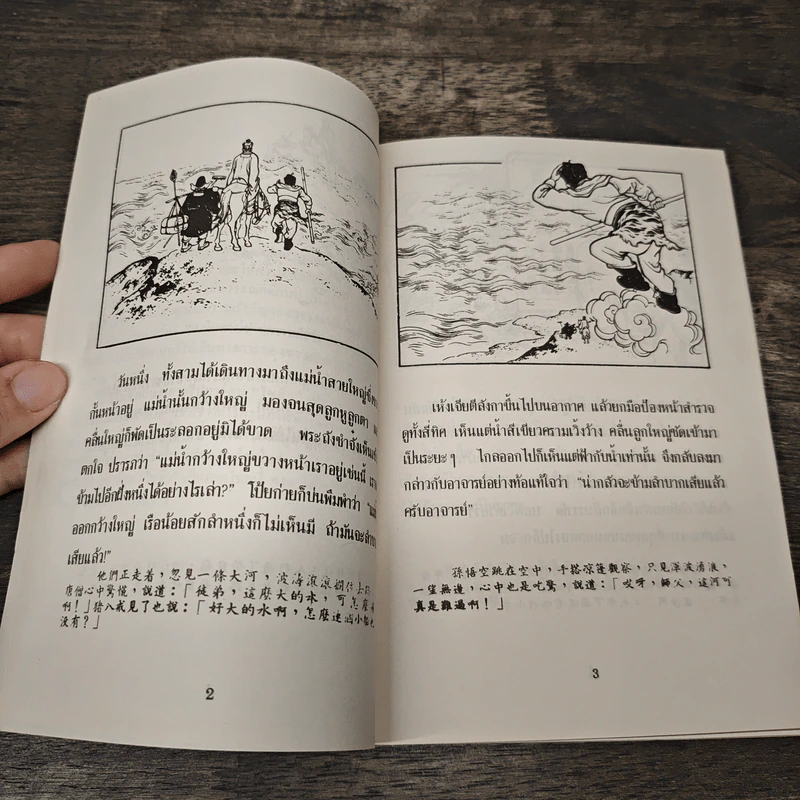 วันหนึ่ง ทั้งสามได้เดินทางมาถึงแม่น้ำสายใหญ่
กั้นหน้าอยู่ แม่น้ำนั้นกว้างใหญ่ มองจนสุดลูกหูลูกตา
คลื่นใหญ่ก็พัดเป็นระลอกอยู่มิได้ขาด พระถังซำจั๋งเห็น
ตกใจ ปรารภว่า “แม่น้ำกว้างใหญ่ขวางหน้าเราอยู่เช่นนี้
ข้ามไปอีกฝั่งหนึ่งได้อย่างไรเล่า?” โป้ยก่ายก็บ่นพึมพำว่า
ออกกว้างใหญ่ เรือน้อยสักลำหนึ่งก็ไม่เห็นมี ถ้ามันจะ
เสียแล้ว!”
他們正走着，忽見一條大河，波濤滾滾攔住
唐僧心中驚慌，說道：「徒弟，這麼大的水，可怎麼
啊！」豬八戒見了也說：「好大的水啊，怎麼連個小船
沒有？」
2
เห้งเจียตีลังกาขึ้นไปบนอากาศ แล้วยกมือป้องหน้าสำรวจ
ดูทั้งสี่ทิศ เห็นแต่น้ำสีเขียวครามเวิ้งว้าง คลื่นลูกใหญ่ซัดเข้ามา
เป็นระยะๆ ไกลออกไปก็เห็นแต่ฟ้ากับน้ำเท่านั้น จึงกลับลงมา
กล่าวกับอาจารย์อย่างท้อแท้ใจว่า “น่ากลัวจะข้ามลำบากเสียแล้ว
ครับอาจารย์”
孫悟空跳在空中，手搭涼篷觀察，只見洋波湧浪，
一望無邊，心中也是吃驚，說道：「哎呀，師父，這河可
真是難過啊！」
3